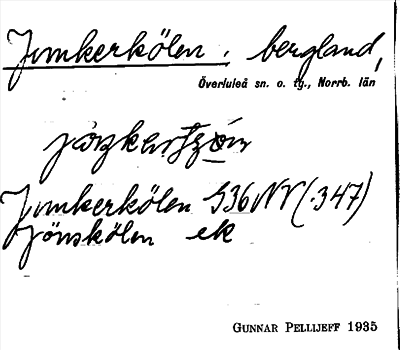 Junkerkölen, bergland,
Överluleå sn. o. tg., Norrb. län
Junkerkölen G36NV(.347)
Jönskölen ek
GUNNAR PELLIJEFF 1935